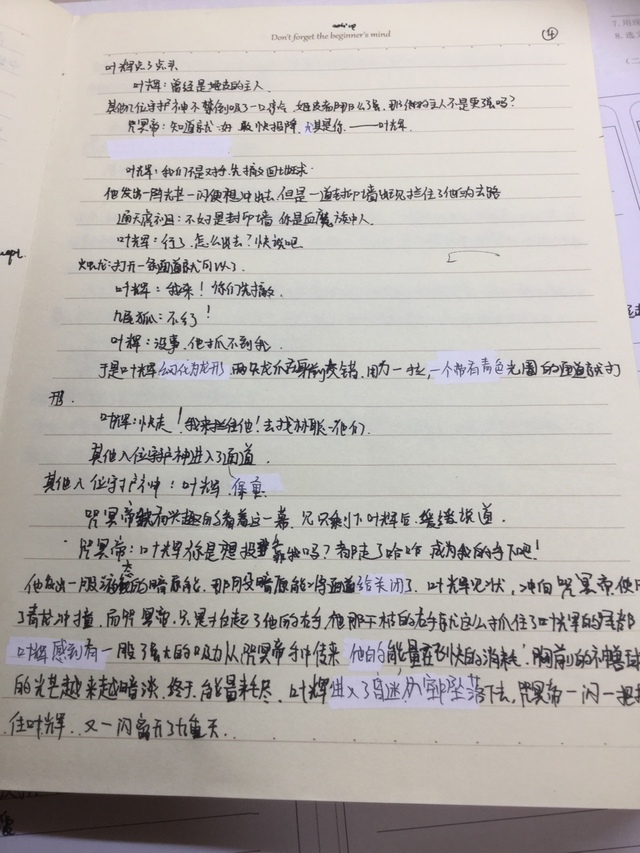 Don't forget the beginner's mind
④
叶辉点了点头
叶辉：曾经是地龙的主人
其他几位守护神不禁倒吸了一口凉气 就这么强，那他的主人不是更强吗？
咒冥帝：知道就好 敢快投降，尤其是你——叶辉
叶辉：我们不是对手先撤回地球
他发出一阵光芒一闪便想冲出去，但是一道封印墙出现拦住了他的去路
通天魔祖：不好是封印墙 你是血魔族中人
叶辉：行了，怎么出去？快说吧
打开一条通道就可以了
叶辉：我来！你们先撤
九尾狐：不行！
叶辉：没事，他抓不到我
于是叶辉幻化为龙形 两只龙爪在身前交错，用力一拉，一个带有青色光圈的通道就打
形
叶辉：快走！我来拦住他！去找 他们
其他八位守护神进入了通道
其他八位守护神：叶辉 保重
咒冥帝饶有兴趣的看着这一幕，见只剩下叶辉后，继续说道
咒冥帝：叶辉你是想投靠我吗？都走了哈哈 成为我的手下吧！
他发出一股液态的暗原能，那股暗原能将通道给关闭了，叶辉见状，冲向咒冥帝使用
了青龙冲撞，而咒冥帝，只是抬起了他的右手，他那干枯的右手就这么抓住了叶辉的
叶辉感到有一股强大的吸力从咒冥帝手中传来 他的能量在飞快的消耗，胸前的
的光芒越来越暗淡，终于，能量耗尽，叶辉进入了昏迷，向 坠落下去，咒冥帝一闪一把抓
住叶辉，又一闪离开了九重天